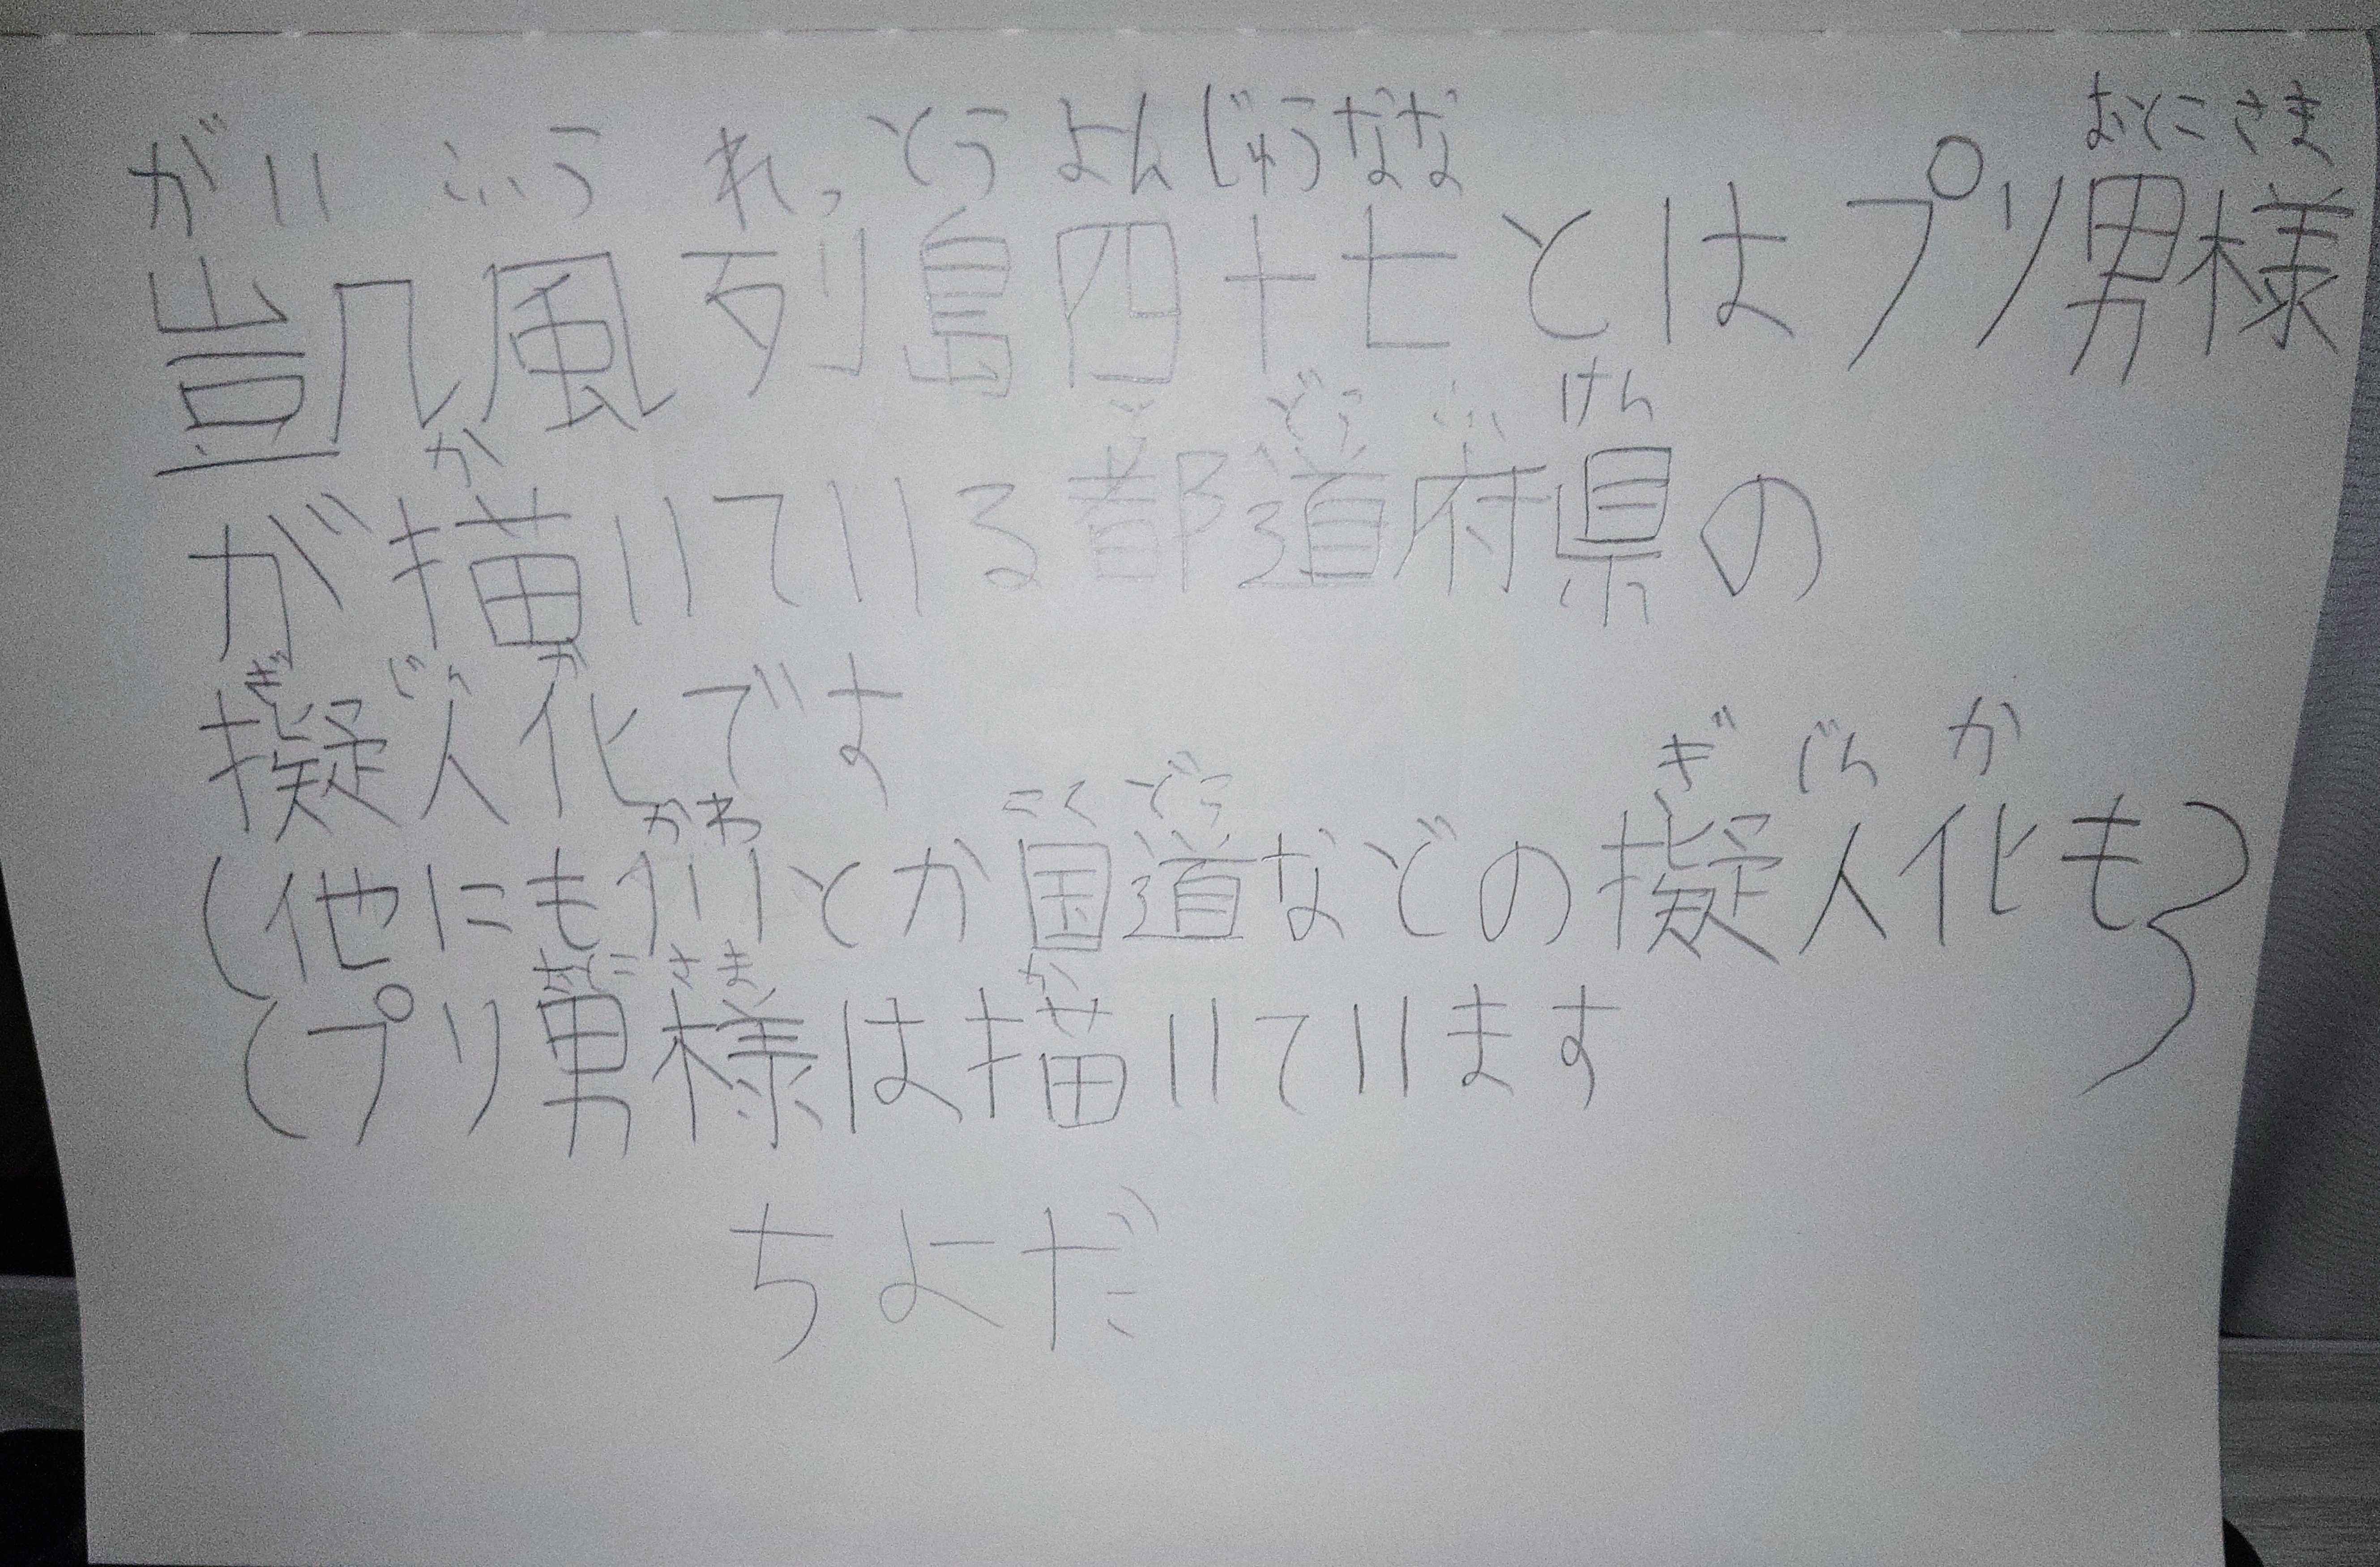 がいふうれっとうよんじゅうなな おとこさま
凱風列島四十七とはプリ男様
か とどうふけん
が描いている都道府県の
ぎじんか
擬人化です
かわ こくどう ぎじんか
(他にも川とか国道などの擬人化も)
おとこさま か
(プリ男様は描いています
ちよだ